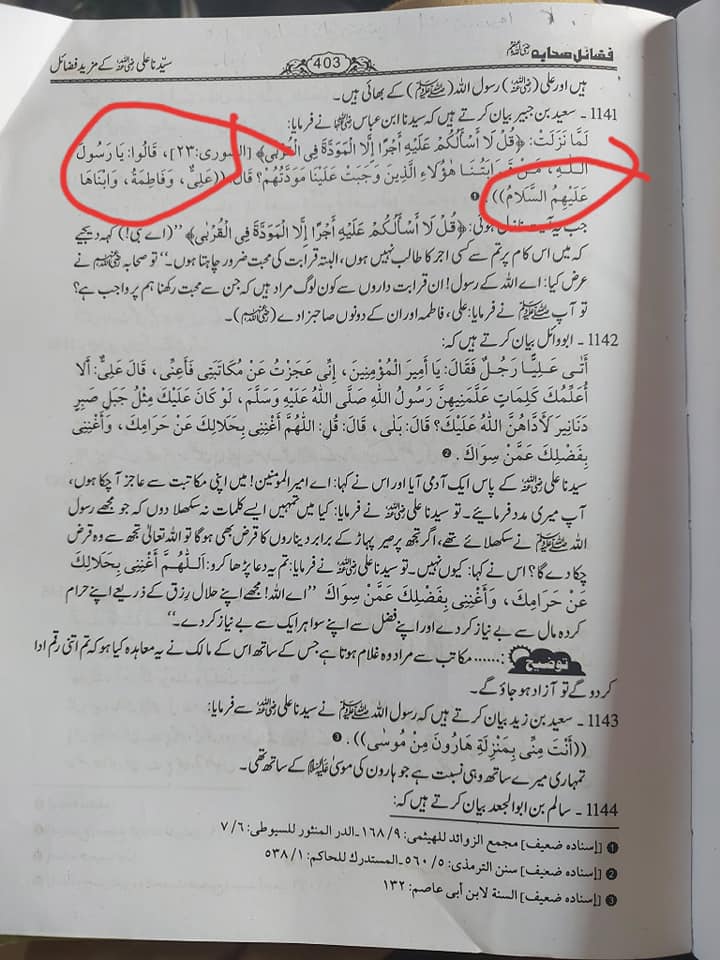 فضائل صحابہ رضی اللہ عنہم
403
سیّدنا علی رضی اللہ عنہ کے مزید فضائل
ہیں اور علی (رضی اللہ عنہ) رسول اللہ (ﷺ) کے بھائی ہیں۔
1141 - سعید بن جبیر بیان کرتے ہیں کہ سیدنا ابن عباس رضی اللہ عنہما نے فرمایا:
لَمَّا نَزَلَتْ: ﴿قُلْ لَا أَسْأَلُكُمْ عَلَيْهِ أَجْرًا إِلَّا الْمَوَدَّةَ فِي الْقُرْبٰى﴾ [الشورى:٢٣]، قَالُوا: يَا رَسُولَ
اللهِ، مَنْ قَرَابَتُنَا هٰؤُلَاءِ الَّذِينَ وَجَبَتْ عَلَيْنَا مَوَدَّتُهُمْ؟ قَالَ: ((عَلِيٌّ، وَفَاطِمَةُ، وَابْنَاهَا
عَلَيْهِمُ السَّلَامُ)). ❶
جب یہ آیت نازل ہوئی: ﴿قُلْ لَا أَسْأَلُكُمْ عَلَيْهِ أَجْرًا إِلَّا الْمَوَدَّةَ فِي الْقُرْبٰى﴾ ’’(اے نبی!) کہہ دیجیے
کہ میں اس کام پر تم سے کسی اجر کا طالب نہیں ہوں، البتہ قرابت کی محبت ضرور چاہتا ہوں۔‘‘ تو صحابہ رضی اللہ عنہم نے
عرض کیا: اے اللہ کے رسول! ان قرابت داروں سے کون لوگ مراد ہیں کہ جن سے محبت رکھنا ہم پر واجب ہے؟
تو آپ ﷺ نے فرمایا: علی، فاطمہ اور ان کے دونوں صاحبزادے (رضی اللہ عنہم)۔
1142 - ابووائل بیان کرتے ہیں کہ:
أَتٰى عَلِيًّا رَجُلٌ فَقَالَ: يَا أَمِيرَ الْمُؤْمِنِينَ، إِنِّي عَجَزْتُ عَنْ مُكَاتَبَتِي فَأَعِنِّي، قَالَ عَلِيٌّ: أَلَا
أُعَلِّمُكَ كَلِمَاتٍ عَلَّمَنِيهِنَّ رَسُولُ اللهِ صَلَّى اللهُ عَلَيْهِ وَسَلَّمَ، لَوْ كَانَ عَلَيْكَ مِثْلُ جَبَلِ صَبِيرٍ
دَنَانِيرَ لَأَدَّاهُنَّ اللهُ عَلَيْكَ؟ قَالَ: بَلٰى، قَالَ: قُلِ: اللّٰهُمَّ أَغْنِنِي بِحَلَالِكَ عَنْ حَرَامِكَ، وَأَغْنِنِي
بِفَضْلِكَ عَمَّنْ سِوَاكَ. ❷
سیدنا علی رضی اللہ عنہ کے پاس ایک آدمی آیا اور اس نے کہا: اے امیرالمومنین! میں اپنی مکاتبت سے عاجز آ چکا ہوں،
آپ میری مدد فرمایئے۔ تو سیدنا علی رضی اللہ عنہ نے فرمایا: کیا میں تمہیں ایسے کلمات نہ سکھلا دوں کہ جو مجھے رسول
اللہ ﷺ نے سکھلائے تھے، اگر تجھ پر صیر پہاڑ کے برابر دیناروں کا قرض بھی ہوگا تو اللہ تعالیٰ تجھ سے وہ قرض
چکا دے گا؟ اس نے کہا: کیوں نہیں۔ تو سیدنا علی رضی اللہ عنہ نے فرمایا: تم یہ دعا پڑھا کرو: اَللّٰهُمَّ أَغْنِنِي بِحَلَالِكَ
عَنْ حَرَامِكَ، وَأَغْنِنِي بِفَضْلِكَ عَمَّنْ سِوَاكَ ’’اے اللہ! مجھے اپنے حلال رزق کے ذریعے اپنے حرام
کردہ مال سے بے نیاز کر دے اور اپنے فضل سے اپنے سوا ہر ایک سے بے نیاز کر دے۔‘‘
توضیح :...... مکاتب سے مراد وہ غلام ہوتا ہے جس کے ساتھ اس کے مالک نے یہ معاہدہ کیا ہو کہ تم اتنی رقم ادا
کر دو گے تو آزاد ہو جاؤ گے۔
1143 - سعید بن زید بیان کرتے ہیں کہ رسول اللہ ﷺ نے سیدنا علی رضی اللہ عنہ سے فرمایا:
((أَنْتَ مِنِّي بِمَنْزِلَةِ هَارُونَ مِنْ مُوسٰى)). ❸
تمہاری میرے ساتھ وہی نسبت ہے جو ہارون کی موسیٰ علیہ السلام کے ساتھ تھی۔
1144 - سالم بن ابوالجعد بیان کرتے ہیں کہ:
❶ [إسناده ضعيف] مجمع الزوائد للهيثمي: ٩/ ١٦٨- الدر المنثور للسيوطي: ٦/ ٧
❷ [إسناده ضعيف] سنن الترمذي: ٥/ ٥٦٠- المستدرك للحاكم: ١/ ٥٣٨
❸ [إسناده ضعيف] السنة لابن أبي عاصم: ١٣٢